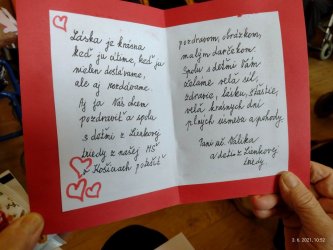 Láska je krásna
keď ju cítime, keď ju
nielen dostávame,
ale aj rozdávame.
Aj ja Vás chcem
pozdraviť a spolu
s deťmi z Lienkovej
triedy z našej MŠ
v Košiciach potešiť
pozdravom, obrázkom,
malým darčekom.
Spolu s deťmi Vám
želáme veľa síl,
zdravie, lásku, šťastie,
veľa krásnych dní
plných úsmevu a pohody.
Pani uč. Valika
a deti z Lienkovej
triedy
2. 6. 2021, 10:52